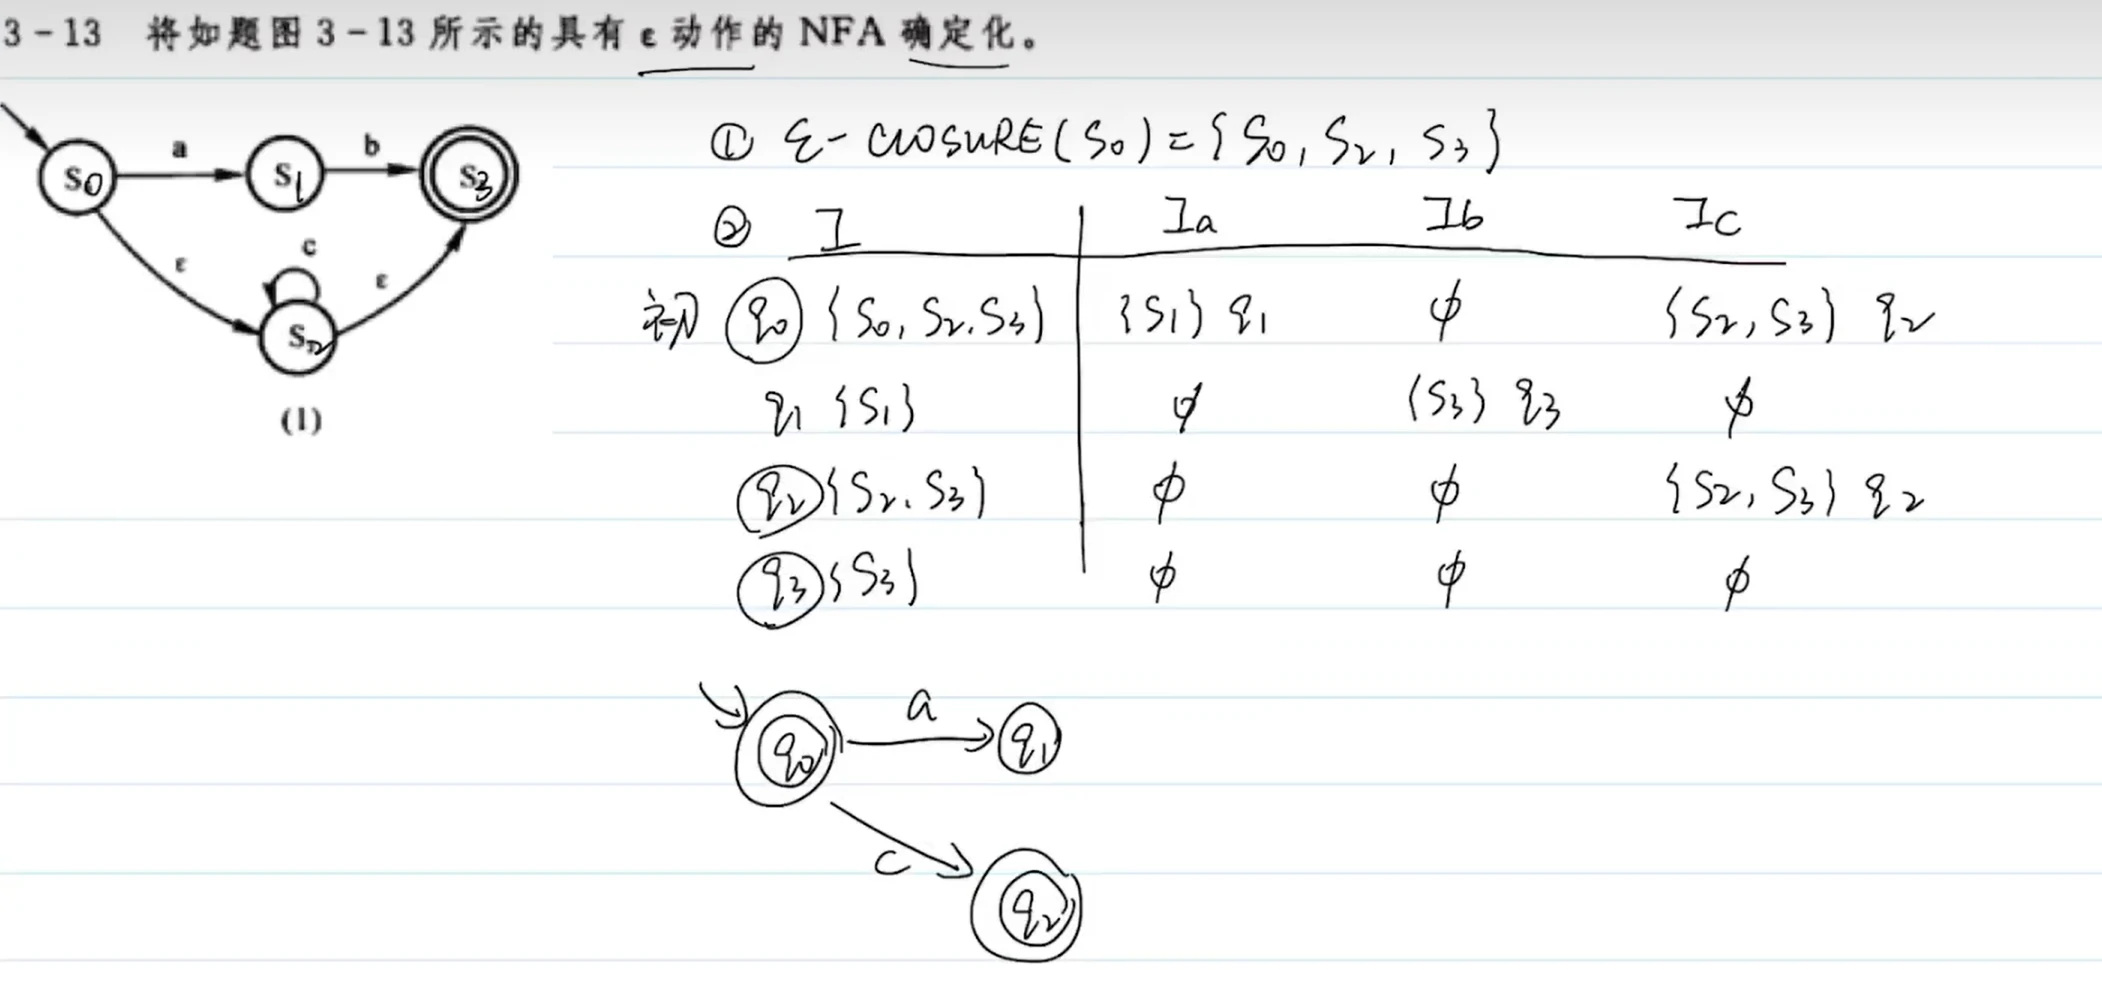 3-13 将如题图 3-13 所示的具有 ε 动作的 NFA 确定化。
S0 a S1 b S3
ε c ε
S2
(1)
① ε-CLOSURE(S0)={S0, S2, S3}
② I Ia Ib Ic
初 q0 {S0, S2, S3} {S1} q1 φ {S2, S3} q2
q1 {S1} φ {S3} q3 φ
q2 {S2, S3} φ φ {S2, S3} q2
q3 {S3} φ φ φ
q0 a q1
c
q2